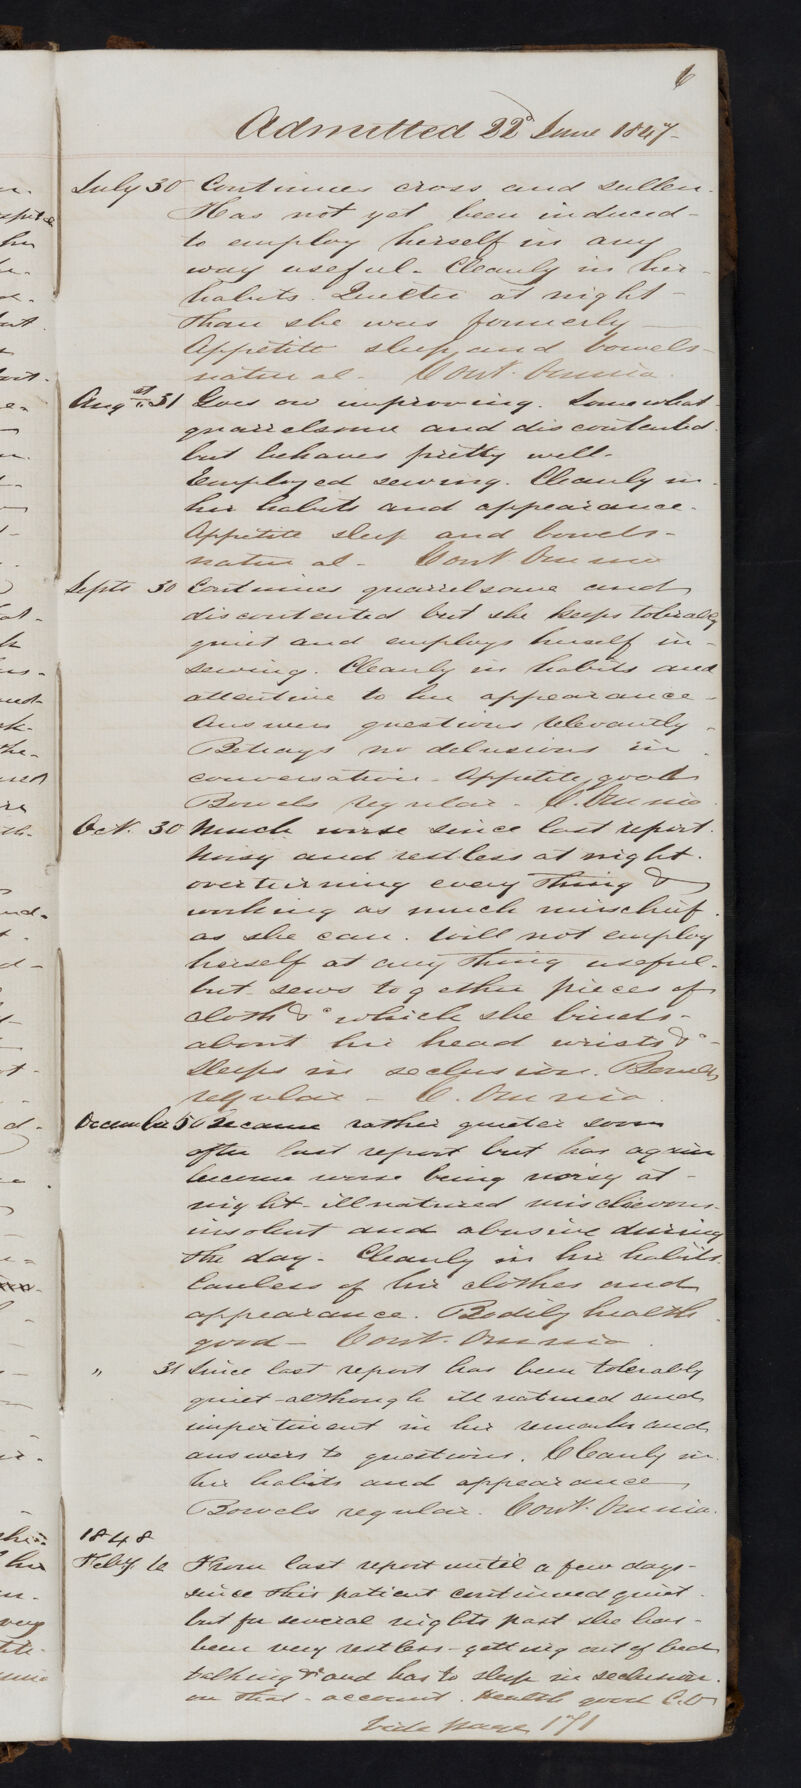 6
Admitted 22d June 1847
July 30 Continues cross and sullen.
Has not yet been induced
to employ herself in any
way useful. Cleanly in her
habits. Quieter at night
than she was formerly
Appetite sleep and bowels
natural. Cont. Omnia.
Augst 31 Goes on improving. Somewhat
quarrelsome and discontented
but behaves pretty well.
Employed sewing. Cleanly in
her habits and appearance.
Appetite sleep and bowels
natural. Cont Omnia
Septr 30 Continues quarrelsome and
discontented but she keeps tolerably
quiet and employs herself in
sewing. Cleanly in habits and
attentive to her appearance
Answers questions relevantly
Betrays no delusions in
conversation. Appetite good
Bowels regular. C. Omnia.
Oct. 30 Much worse since last report.
Noisy and restless at night.
overturning every thing &
working as much mischief
as she can. Will not employ
herself at any thing useful
but sews together pieces of
cloth &c which she binds
about her head wrists &c
Sleeps in seclusion. Bowels
regular - C. Omnia.
December 5 Became rather quieter soon
after last report but has again
become worse being noisy at
night - illnatured mischievous
insolent and abusive during
the day. Cleanly in her habits
Careless of her clothes and
appearance. Bodily health
good - Cont. Omnia
" 31 Since last report has been tolerably
quiet although ill natured and
impertinent in her remarks and
answers to questions. Cleanly in
her habits and appearance
Bowels regular. Cont. Omnia.
1848
Feby. From last report until a few days
since this patient continued quiet
but for several nights past she has
been very restless - getting out of bed
talking &c and has to sleep in seclusion
on that account. Health good C.O
Vide page 171